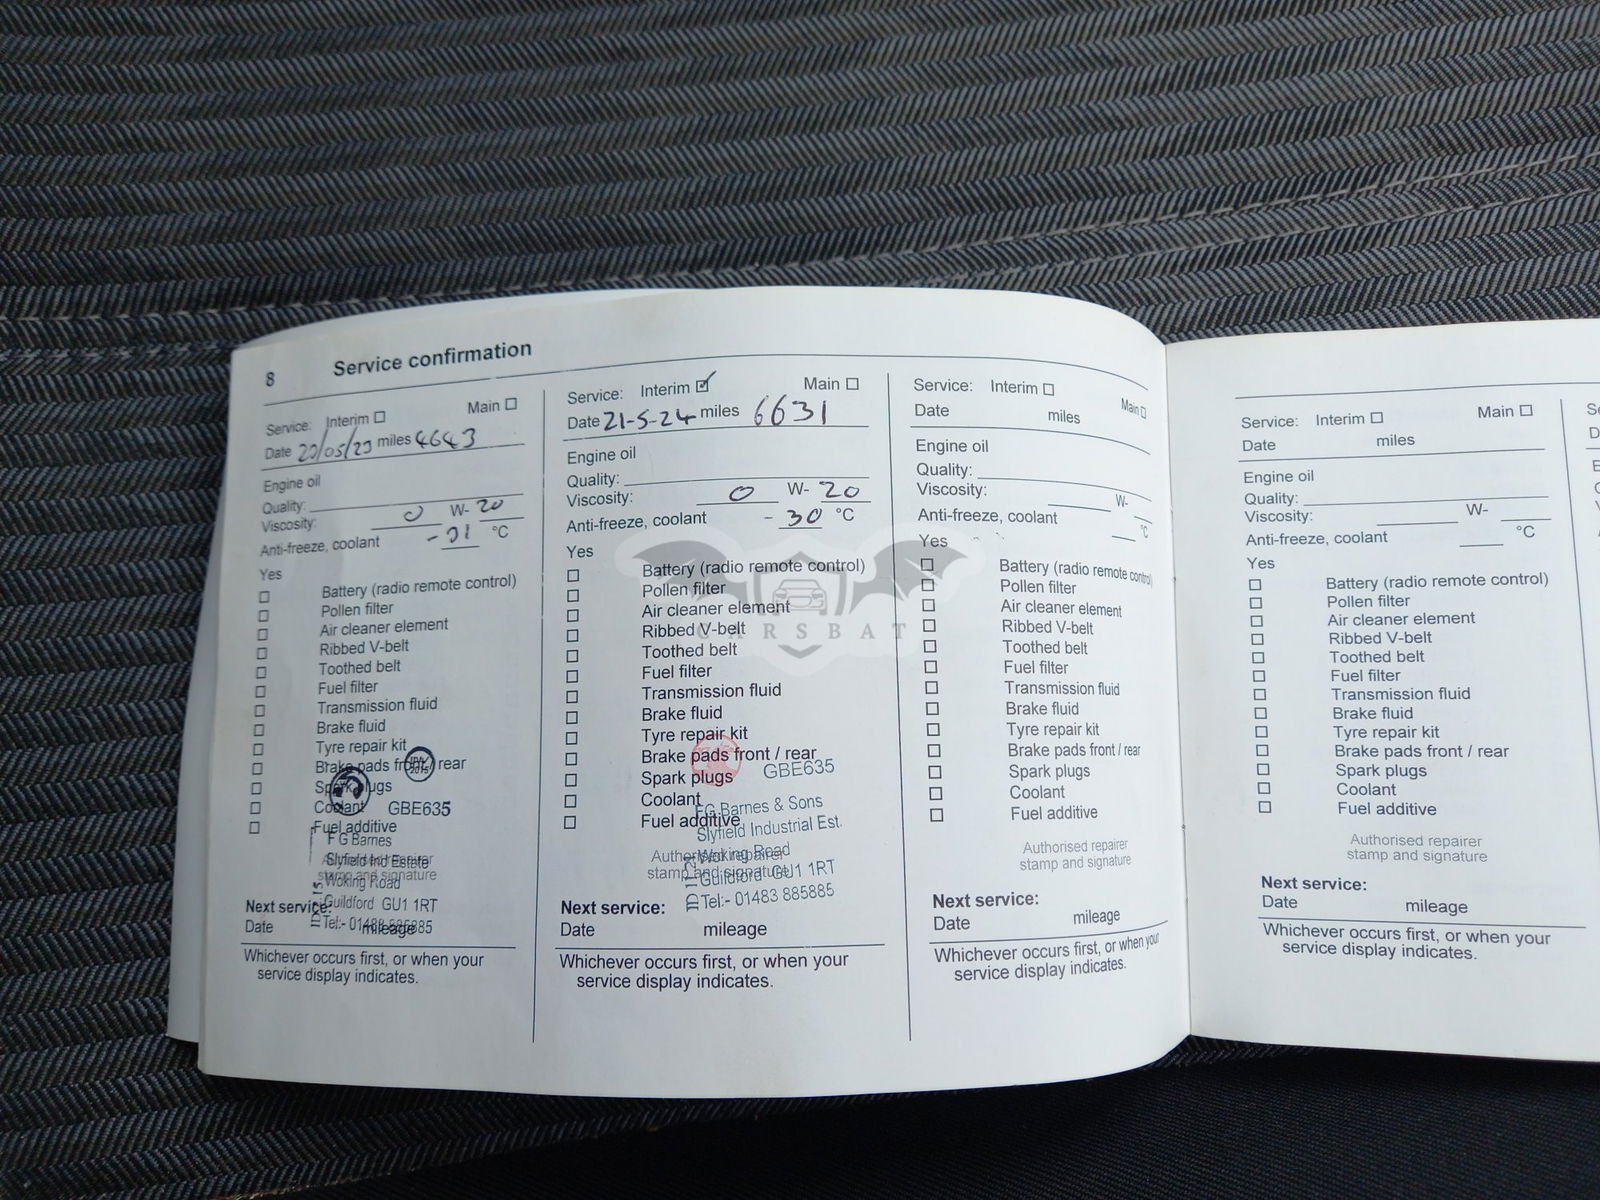 8 Service confirmation
Service: Interim Main
Date 20/05/23 miles 4643
Engine oil
Quality:
Viscosity: 0 W- 20
Anti-freeze, coolant -31 °C
Yes
Battery (radio remote control)
Pollen filter
Air cleaner element
Ribbed V-belt
Toothed belt
Fuel filter
Transmission fluid
Brake fluid
Tyre repair kit
Brake pads front / rear
Spark plugs
Coolant GBE635
Fuel additive
F G Barnes
Slyfield Ind Estate
Authorised repairer
stamp and signature
Woking Road
Guildford GU1 1RT
Next service:
Tel:- 01483 885885
Date mileage
Whichever occurs first, or when your
service display indicates.
Service: Interim Main
Date 21-5-24 miles 6631
Engine oil
Quality:
Viscosity: 0 W- 20
Anti-freeze, coolant - 30 °C
Yes
Battery (radio remote control)
Pollen filter
Air cleaner element
Ribbed V-belt
Toothed belt
Fuel filter
Transmission fluid
Brake fluid
Tyre repair kit
Brake pads front / rear
Spark plugs GBE635
Coolant
FG Barnes & Sons
Fuel additive
Slyfield Industrial Est.
Authorised repairer
Woking Road
stamp and signature
Guildford GU1 1RT
Tel:- 01483 885885
Next service:
Date mileage
Whichever occurs first, or when your
service display indicates.
Service: Interim Main
Date miles
Engine oil
Quality:
Viscosity: W-
Anti-freeze, coolant °C
Yes
Battery (radio remote control)
Pollen filter
Air cleaner element
Ribbed V-belt
Toothed belt
Fuel filter
Transmission fluid
Brake fluid
Tyre repair kit
Brake pads front / rear
Spark plugs
Coolant
Fuel additive
Authorised repairer
stamp and signature
Next service:
Date mileage
Whichever occurs first, or when your
service display indicates.
Service: Interim Main
Date miles
Engine oil
Quality:
Viscosity: W-
Anti-freeze, coolant °C
Yes
Battery (radio remote control)
Pollen filter
Air cleaner element
Ribbed V-belt
Toothed belt
Fuel filter
Transmission fluid
Brake fluid
Tyre repair kit
Brake pads front / rear
Spark plugs
Coolant
Fuel additive
Authorised repairer
stamp and signature
Next service:
Date mileage
Whichever occurs first, or when your
service display indicates.
CARSBAT